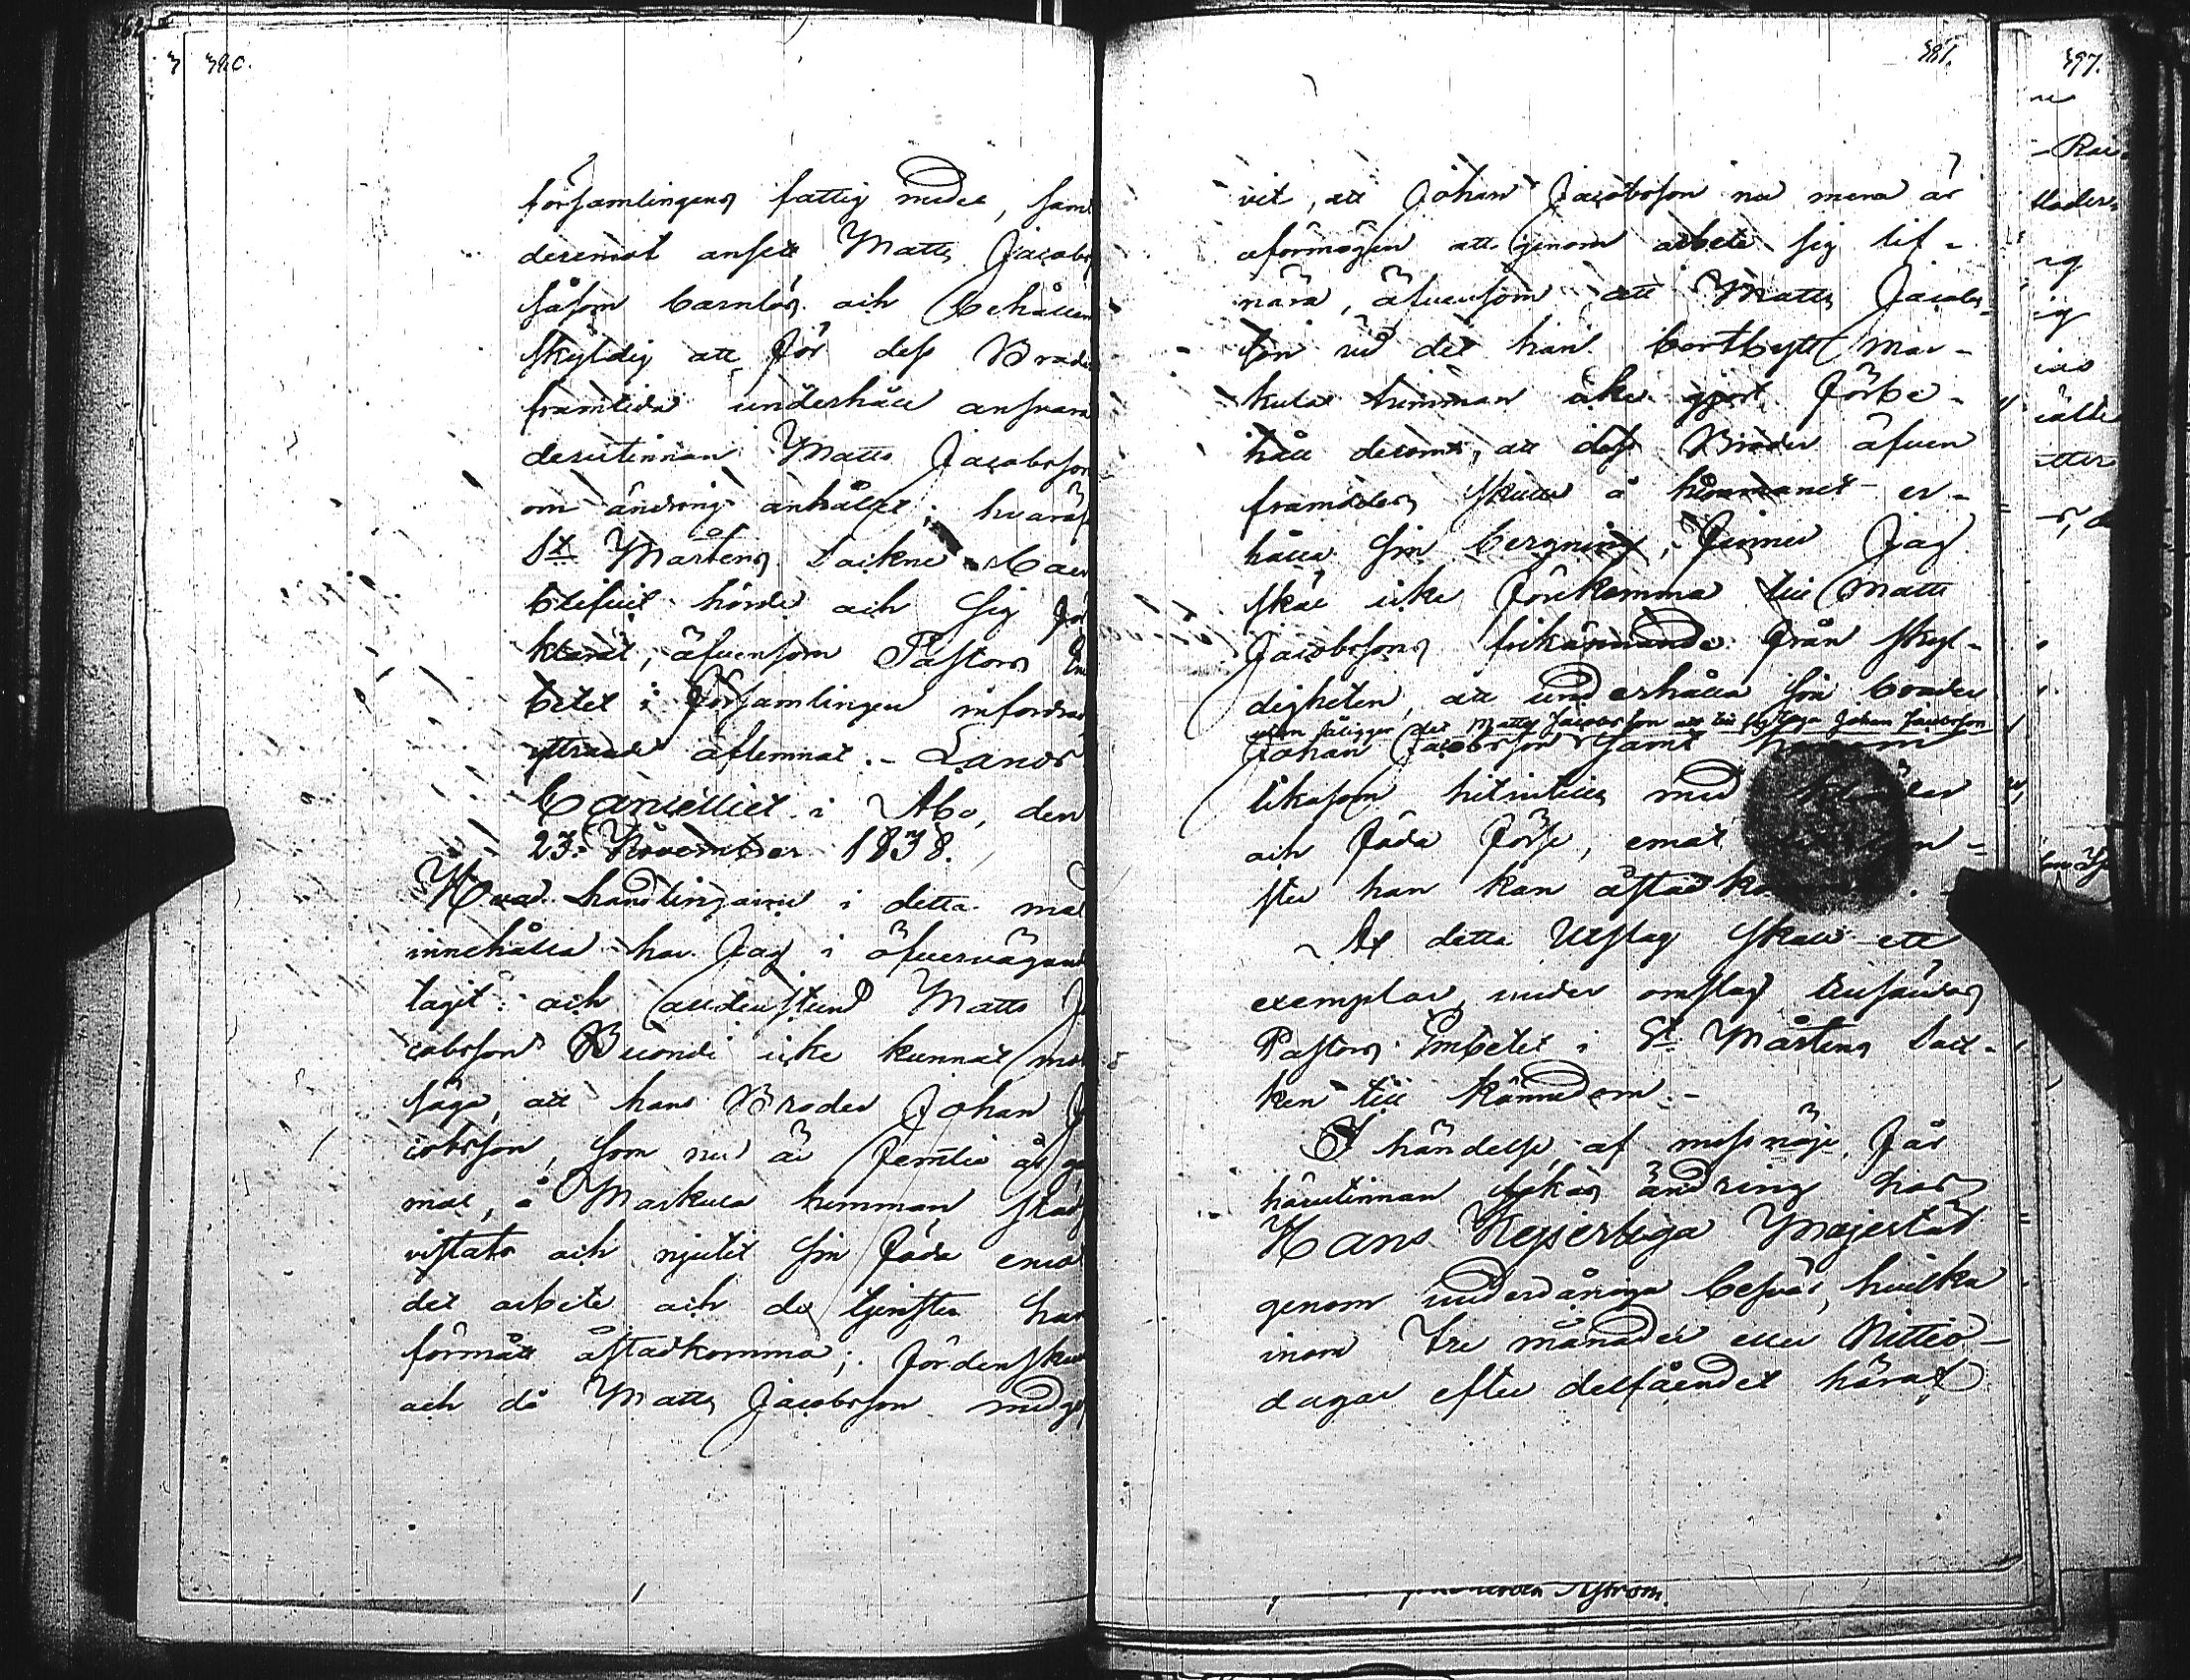 380.
församlingens fattig medel, sam
deremot ansett Matts Jacobs
såsom barnlös och behållen
skyldig att för dess Brode
framtida underhåll ansvara
derutinnan Matts Jacobsson
om ändring anhållit; hvaröf
St Mårtens Sockne
blifvit hörde och sig för
klarat, äfvensom Pastors Em
betet i församlingen infordra
yttrande aflemnat. - Lands
Cancelliet i Åbo, den
23 November 1838.
Hvad handlingarne i detta mål
innehålla har Jag i öfvervägand
tagit: och alldenstund Matts J
cobsson icke kunnat
säga, att hans Broder Johan J
cobsson, som nu är femtio år ga
mal, å Markula hemman städ
vistats och njutit sin föda emot
det arbete och de tjenster han
förmått åstadkomma; fördenskull
och då Matts Jacobsson medgi
381.
vit, att Johan Jacobsson nu mera är
oförmögen att genom arbete sig lif-
nära, äfvensom att Matts Jacobs-
son vid det han bortbytt Mar-
kula hemman icke gjort förbe-
håll derom, att dess Broder äfven
framdeles skulle å hemmanet er-
hålla sin bergning, finner Jag
skäl icke förekomma till Matts
Jacobssons frikännande från skyl-
digheten, att underhålla sin broder
utan åligger det Matts Jacobsson att till sig taga Johan Jacobsson
Johan Jacobsson samt honom
likasom hitintills med kläder
och föda förse, emot
ster han kan åstadko
Af detta Utslag skall ett
exemplar under omslag tillsändas
Pastors Embetet i St Mårtens Sock-
ken till kännedom. -
I händelse af missnöje får
härutinnan sökas ändring hos
Hans Kejserliga Majestät
genom underdåniga besvär, hvilka
inom Tre månader eller Nittio-
dagar efter delfåendet häraf
Åström.
397.